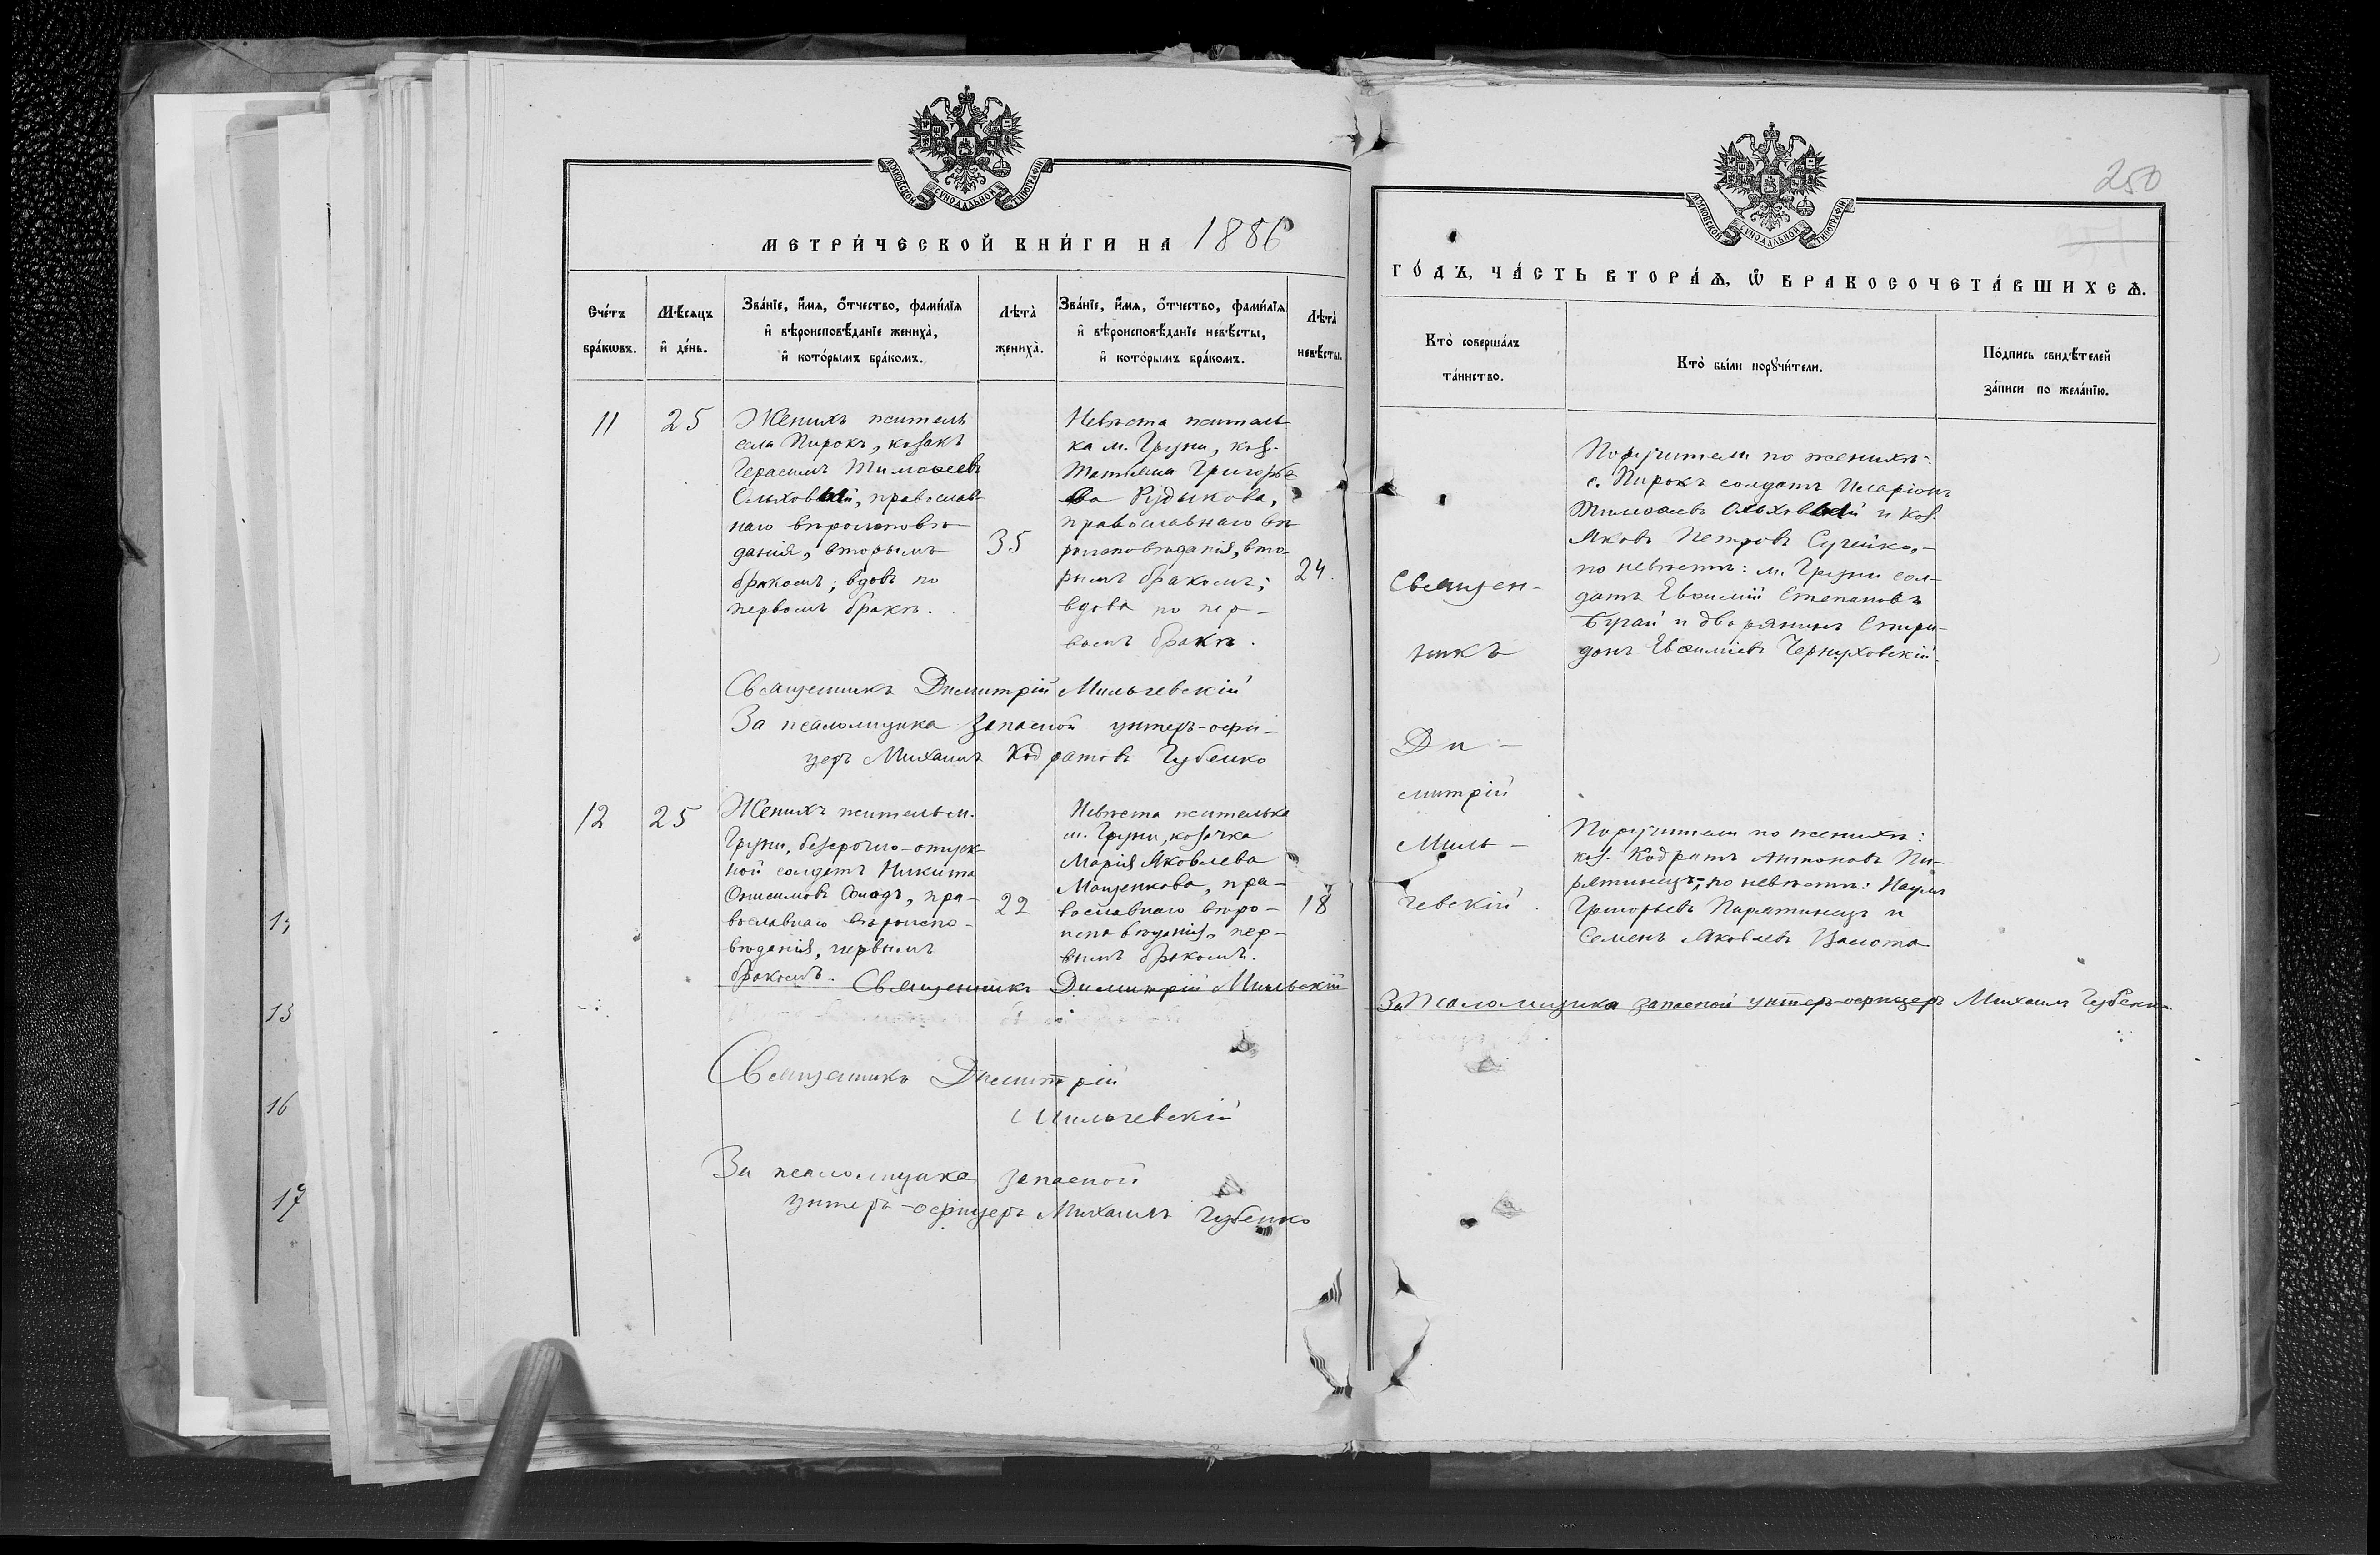 МОСКОВСКОЙ СѴНОДАЛЬНОЙ ТИПОГРАФІИ
МЕТРИ́ЧЕСКОЙ КНИ́ГИ НА 1886
Сче́тъ бра́кωвъ.
Мѣ́сяцъ и҆ де́нь.
Зва́нїе, и҆́мя, ѻ҆́тчество, фами́лїя
и҆ вѣроисповѣ́данїе жениха̀,
и҆ кото́рымъ бра́комъ.
Лѣта̀ жениха̀.
Зва́нїе, и҆́мя, ѻ҆́тчество, фами́лїя
и҆ вѣроисповѣ́данїе невѣ́сты,
и҆ кото́рымъ бра́комъ.
Лѣта̀ невѣ́сты.
11
25
Женихъ житель
села Пирокъ, козакъ
Герасимъ Тимоѳеевъ
православ-
наго вѣроисповѣ-
данія, вторымъ
бракомъ; вдовъ по
первомъ бракѣ.
35
Невѣста житель-
ка м. Груни, коз.
Татьяна Григорье-
ва Рудыкова,
православнаго вѣ-
роисповѣданія, вто-
рымъ бракомъ;
вдова по пер-
вомъ бракѣ.
24.
Священникъ Димитрій Мильчевскій
За псаломщика запасной унтеръ-офи-
церъ Михаилъ Кодратовъ Губенко
12
25
Женихъ житель м.
Груни, безсрочно-отпуск-
ной солдатъ Никита
Онисимовъ пра-
вославнаго вѣроиспо-
вѣданія, первымъ
бракомъ.
22
Невѣста жителька
м. Груни, козачка
Марія Яковлева
Мащенкова, пра-
вославнаго вѣро-
исповѣданія, пер-
вымъ бракомъ.
18
Священникъ Димитрій Мильвскій
Священникъ Димитрій
Мильчевскій
За псаломщика запасной
унтеръ-офицеръ Михаилъ Губенко
250
МОСКОВСКОЙ СѴНОДАЛЬНОЙ ТИПОГРАФІИ
ГО́ДЪ, ЧА́СТЬ ВТОРА́Ѧ, Ѡ҆ БРАКОСОЧЕТА́ВШИХСѦ.
Кто̀ соверша́лъ
та́инство.
Кто̀ бы́ли порꙋчи́тели.
По́дпись свидѣ́телей
за́писи по жела́нїю.
Священ-
никъ
Ди-
митрій
Миль-
чевскій.
Поручители по женихѣ:
с. Пирокъ солдатъ Иларіонъ
Тимоѳеевъ и коз.
Яковъ Петровъ
по невѣстѣ: м. Груни сол-
датъ Евѳимій Степановъ
Бугай и дворянинъ Спири-
донъ Евѳиміевъ Чернуховскій.
Поручители по женихѣ:
коз. Кодратъ Антоновъ Пи-
рятинецъ; по невѣстѣ: Наумъ
Григорьевъ Пирятинецъ и
Семенъ Яковлевъ
За Псаломщика запасной унтеръ-офицеръ Михаилъ Губенко
15
16
17